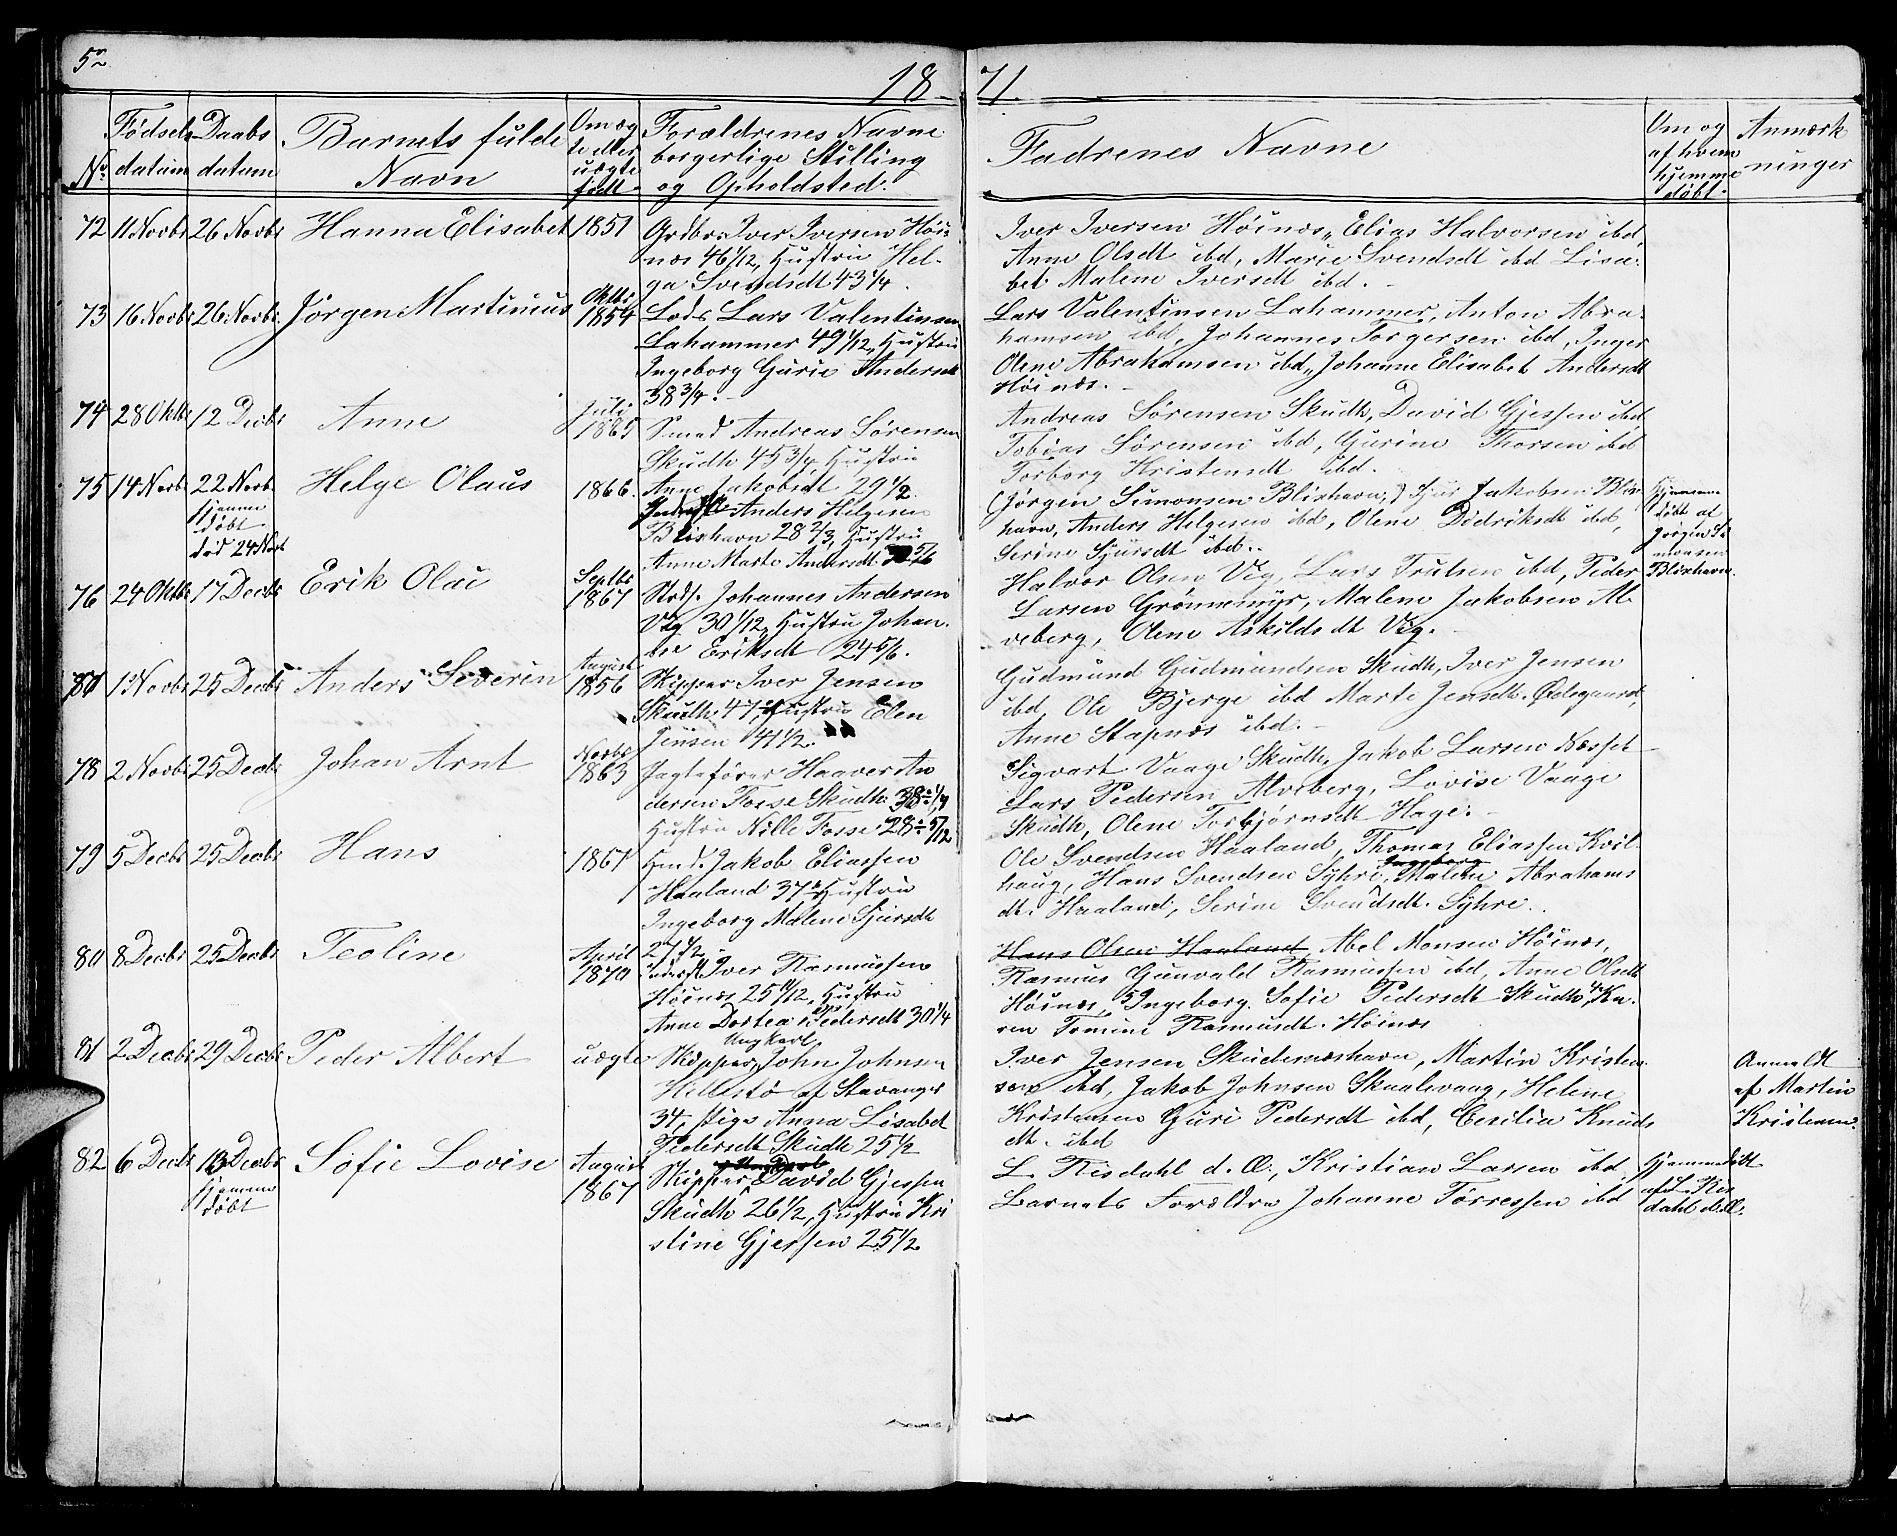 5
18 71.
Fødsels Daabs Barnets fulde Om æg Forældrenes Navne Fadrenes Navne Om og Anmærk
No datum datum Navn te eller borgerlige Stilling af hvem ninger
uægte og Opholdsted. hjemme
født døbt.
72 11 Novbr 26 Novbr Hanna Elisabet 1851 Grdbr. Iver Iversen Høi
næs 46 1/12, Hustru Hel-
ga Svendsdt 43 1/4.
Iver Iversen Høinæs, Elias Halvorsen ibd,
Anne Olsdt ibd, Marie Svendsdt ibd Lisa-
bet Malene Iversdt ibd.
73 16 Novbr 26 Novbr. Jørgen Martinius Oktbr 1854 Lods Lars Valentinsen
Lahammer 49 1/12, Hustru
Ingeborg Gurie Andersdt
38 3/4.
Lars Valentinsen Lahammer, Anton Abra-
hamsen ibd, Johannes Torgersen ibd, Inger
Oline Abrahamsen ibd, Johanne Elisabet Andersdt
Høinæs.
74 28 Oktb 12 Decbr Anne Juli 1865 Smed Andreas Sørensen
Skudh 45 3/4, Hustru
Anne Jakobsdt 29 1/2.
Andreas Sørensen Skudh, David Gjessen ibd,
Tobias Sørensen ibd, Gurine Thorsen ibd
Torborg Kristensdt ibd.
75 14 Novbr 22 Novb. Helge Olaus 1866. Anders Helgesen
hjemme
døbt
død 24 Novb
Blixhavn 28 2/3, Hustru
Anne Marte Andersdt
(Jørgen Simonsen Blixhavn,) Sjur Jakobsen Blix-
havn, Anders Helgesen ibd, Olene Didriksdt ibd,
Serine Sjursdt ibd.
Hjemme
døbt af
Jørgen Si
monsen
Blixhavn.
76 24 Oktb 17 Decbr Erik Olai Septbr 1867 Strds. Johannes Andersen
Vig 30 1/12, Hustru Johan-
ne Eriksdt 24 5/6.
Halvor Olsen Vig, Lars Trulsen ibd, Peder
Larsen Grønnemyr, Malene Jakobsen Al-
veberg, Olene Askildsdt Vig.
1 Novbr 25 Decbr Anders Severin August 1856 Skipper Iver Jensen
Skudh. 47, Hustru Elen
Jensen 41 1/2.
Gudmund Gudmundsen Skudh, Iver Jensen
ibd, Ole Bjerge ibd Marte Jensdt. Ødegaard,
Anne Stapnæs ibd.
78 2 Novbr 25 Decbr Johan Arnt Novbr 1863 Jagtefører Haaver An
dersen Fosse Skudh. 38 1/4
Hustru Nille Fosse 28 5/12
Sigvart Vaage Skudh, Jakob Larsen Næsset
Lars Pedersen Alveberg, Lovise Vaage
Skudh, Olene Torbjørnsdt Hage.
79 5 Decbr 25 Decbr Hans 1861 Hmd. Jakob Eliassen
Haaland 37 Hustru
Ingeborg Malene Sjursdt
27 1/2
Ole Svendsen Haaland, Thomas Eliassen Kvil-
haug, Hans Svendsen Syhre, Malene Abrahams
dt. Haaland, Serine Svendsdt. Syhre.
80 8 Decbr 25 Decbr Teoline April 1870 Iver Rasmussen
Høinæs 25 11/12, Hustru
Anne Dortea Pedersdt 30 1/4
Hans Olsen Haaland, Abel Monsen Høinæs,
Rasmus Gunvald Rasmussen ibd, Anne Olsdt
Høinæs, Ingeborg Sofie Pedersdt Skudh, Ka-
ren Tomine Rasmusdt. Høinæs
81 2 Decbr 29 Decbr Peder Albert uægte Ungkarl
Skipper John Johnsen
Hillestø af Stavanger
34, Pige Anna Lisabet
Pedersdt Skudh 25 1/2
Iver Jensen Skudesneshavn, Martin Kristen-
sen ibd, Jakob Johnsen Skaalevaag, Helene
Kristensen Guri Pedersdt ibd, Cecilia Knuds
dt. ibd
Anmeldt
af Martin
Kristensen.
82 6 Decbr 13 Decbr Sofie Lovise August 1867 Skipper David Gjessen
hjemme
døbt
Skudh 26 1/2, Hustru Kri
stine Gjessen 25 1/2
L. Risdahl d. Æ., Kristian Larsen ibd,
Barnets Forældre Johanne Torressen ibd
Hjemmedøbt
af L. Ris
dahl d. Æ.